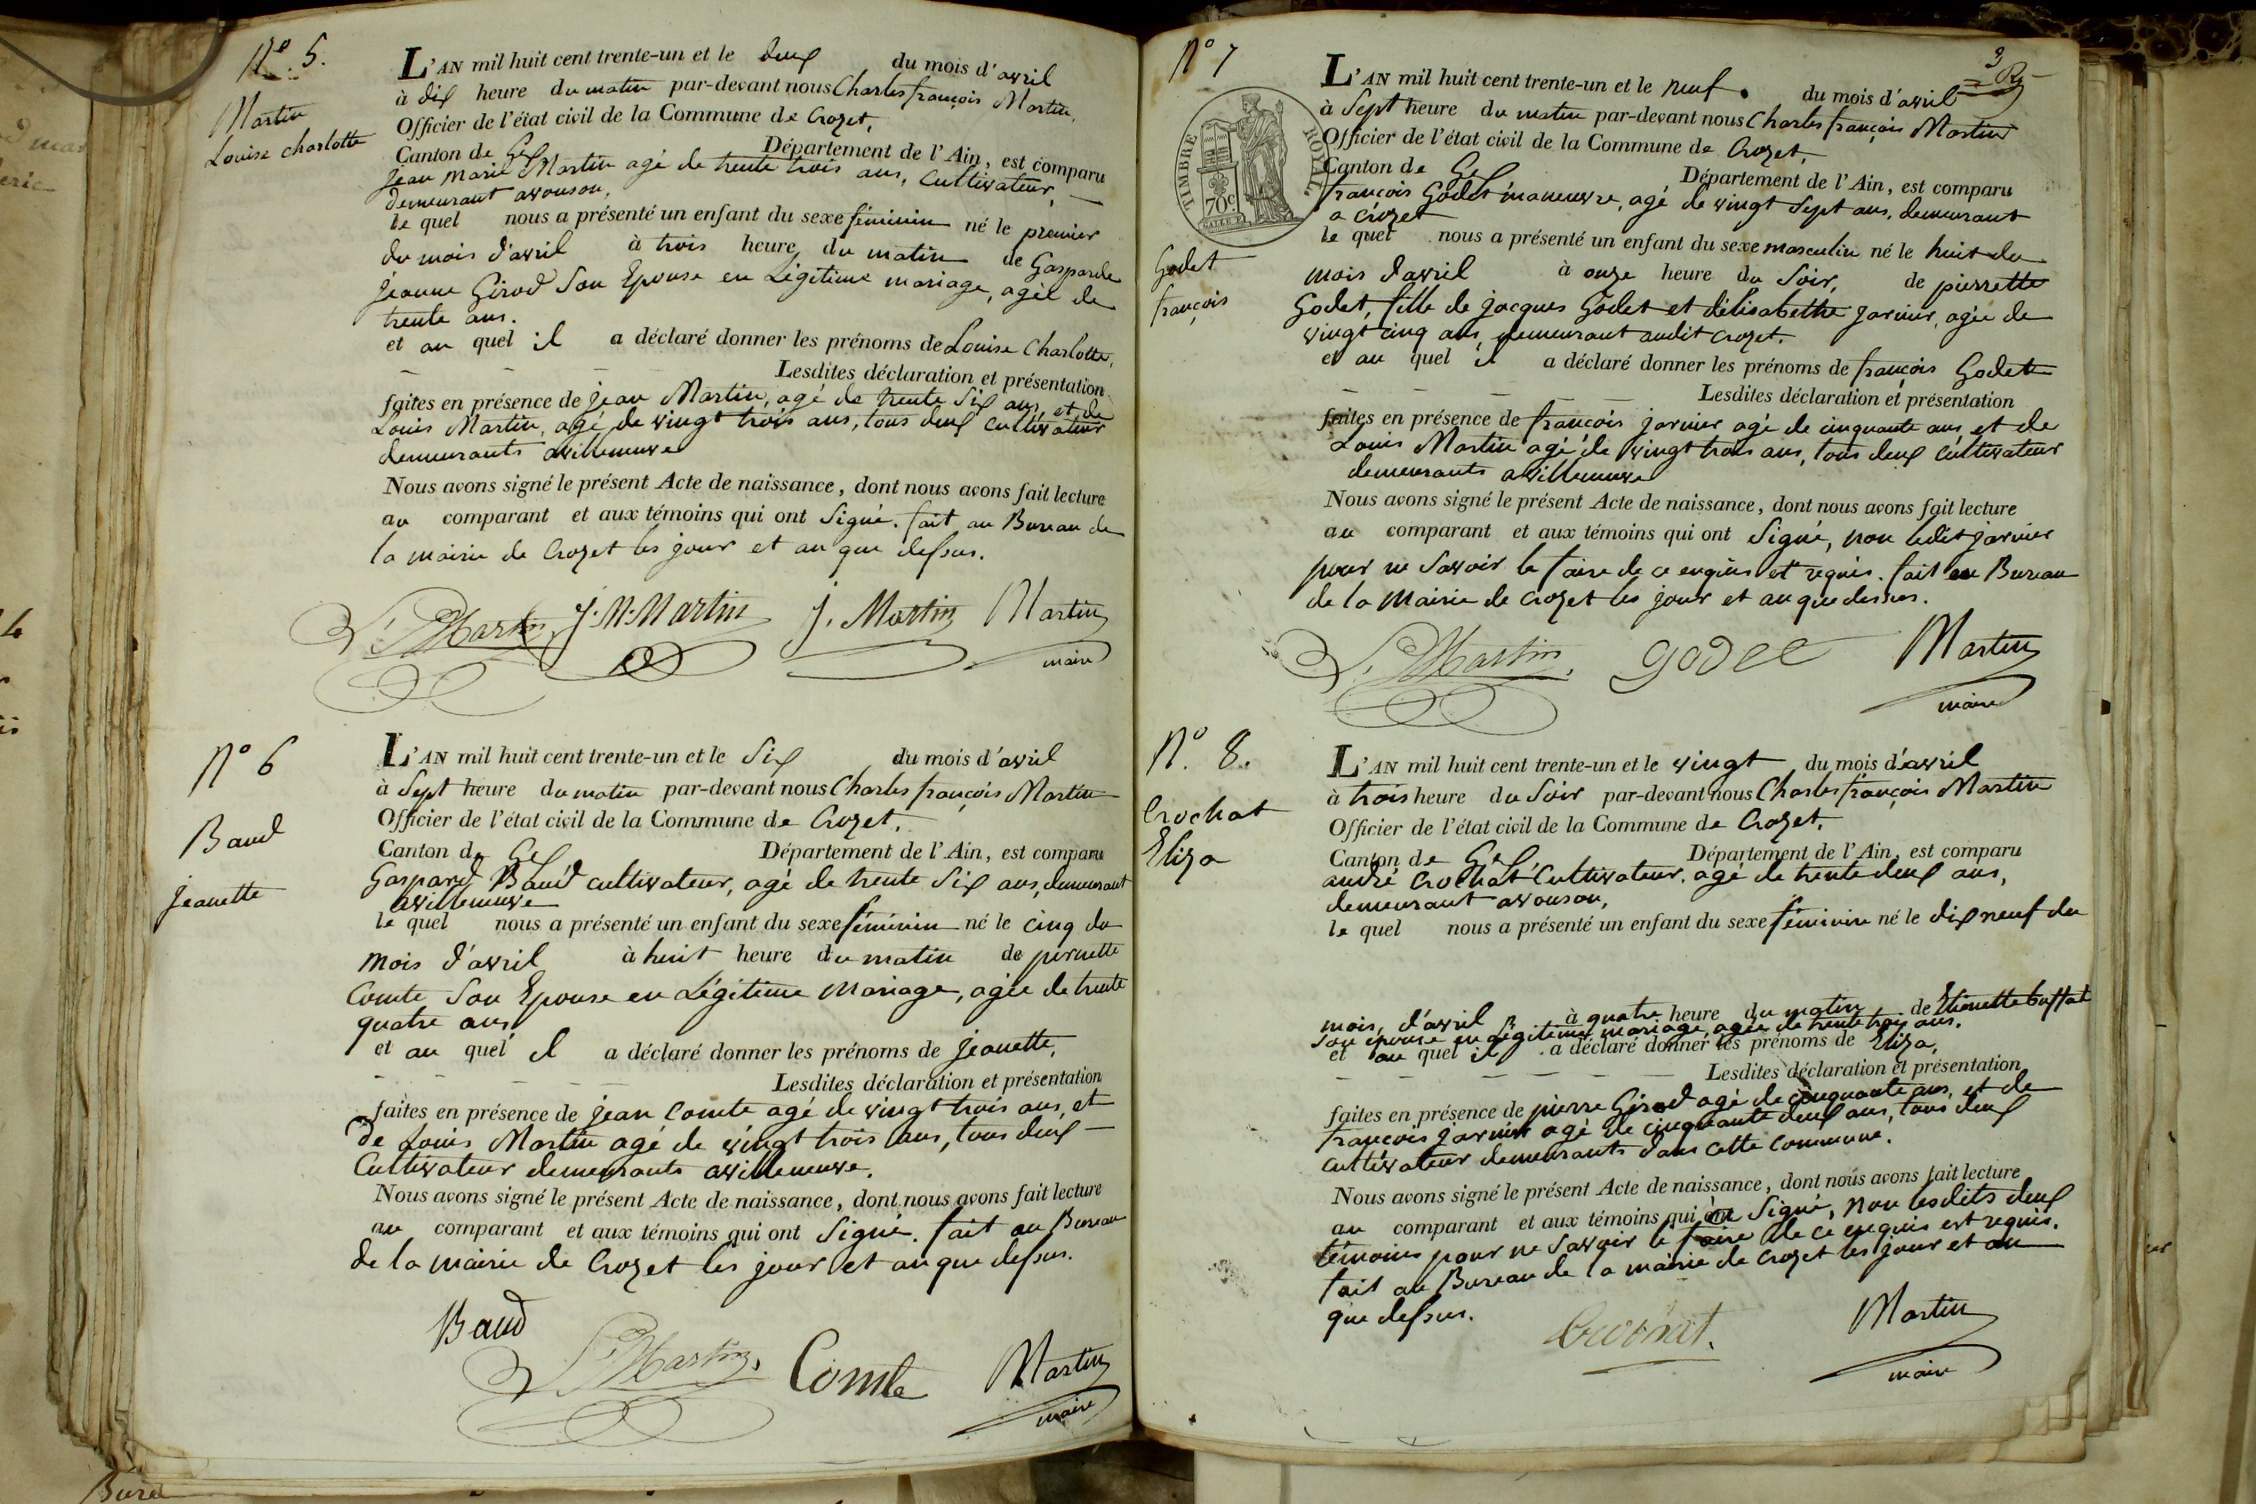 N.º 5.
Martin
Louise charlotte
L'AN mil huit cent trente-un et le deux du mois d'avril
à dix heure du matin par-devant nous Charles françois Martin,
Officier de l'état civil de la Commune de Crozet,
Canton de Gex Département de l'Ain, est comparu
jean marie Martin agé de trente trois ans, cultivateur,
demeurant avouson,
le quel nous a présenté un enfant du sexe féminin né le premier
du mois d'avril à trois heure du matin de Gasparde
jeanne Girod Son Epouse en Légitime mariage, agée de
trente ans.
et au quel il a déclaré donner les prénoms de Louise Charlotte,
Lesdites déclaration et présentation
faites en présence de jean Martin, agé de trente Six ans, et de
Louis Martin, agé de vingt trois ans, tous deux cultivateur
demeurants avilleneuve
Nous avons signé le présent Acte de naissance, dont nous avons fait lecture
au comparant et aux témoins qui ont Signé. fait au Bureau de
la mairie de Crozet les jour et an que dessus.
L. Martin J. M. Martin j. Martin Martin
maire
Nº 6
Baud
jeanette
L'AN mil huit cent trente-un et le Six du mois d'avril
à Sept heure du matin par-devant nous Charles françois Martin
Officier de l'état civil de la Commune de Crozet,
Canton de Gex Département de l'Ain, est comparu
Gaspard Baud cultivateur, agé de trente Six ans, demeurant
avilleneuve
le quel nous a présenté un enfant du sexe féminin né le cinq du
mois d'avril à huit heure du matin de pernette
Comte Son Epouse en Légitime Mariage, agée de trente
quatre ans
et au quel il a déclaré donner les prénoms de jeanette,
Lesdites déclaration et présentation
faites en présence de jean Comte agé de vingt trois ans, et
de Louis Martin agé de vingt trois ans, tous deux
Cultivateur demeurants avilleneuve.
Nous avons signé le présent Acte de naissance, dont nous avons fait lecture
au comparant et aux témoins qui ont Signé. fait au Bureau
de la mairie de Crozet les jour et an que dessus.
Baud
L. Martin, Comte Martin
maire
Nº 7
3
TIMBRE ROYAL
70c
Godet
françois
L'AN mil huit cent trente-un et le neuf du mois d'avril
à Sept heure du matin par-devant nous Charles françois Martin
Officier de l'état civil de la Commune de Crozet,
Canton de Gex Département de l'Ain, est comparu
françois Godet maneuvre, agé de vingt Sept ans, demeurant
a crozet
le quel nous a présenté un enfant du sexe masculin né le huit du
mois d'avril à onze heure du Soir, de pierrette
Godet, fille de jacques Godet et d'elisabethe jarnier, agée de
vingt cinq ans, demeurant audit crozet.
et au quel il a déclaré donner les prénoms de françois Godet
Lesdites déclaration et présentation
faites en présence de françois jarnier agé de cinquante ans et de
Louis Martin agé de vingt trois ans, tous deux cultivateur
demeurants avilleneuve
Nous avons signé le présent Acte de naissance, dont nous avons fait lecture
au comparant et aux témoins qui ont Signé, non ledit jarnier
pour ne Savoir le faire de ce enquis et requis. fait au Bureau
de la Mairie de Crozet les jour et an que dessus.
L. Martin. godet Martin
maire
Nº. 8.
Crochat
Eliza
L'AN mil huit cent trente-un et le vingt du mois d'avril
à trois heure du Soir par-devant nous Charles françois Martin
Officier de l'état civil de la Commune de Crozet,
Canton de Gex Département de l'Ain, est comparu
andré Crochat Cultivateur, agé de trente deux ans,
demeurant avouson,
le quel nous a présenté un enfant du sexe féminin né le dix neuf du
mois, d'avril à quatre heure du matin de Etienette buffat
son epouse en Légitime mariage, agée de trente trois ans.
et au quel il a déclaré donner les prénoms de Eliza,
Lesdites déclaration et présentation
faites en présence de pierre Girod agé de cinquante ans, et de
françois jarnier agé de cinquante deux ans, tous deux
cultivateur demeurants dans cette commune.
Nous avons signé le présent Acte de naissance, dont nous avons fait lecture
au comparant et aux témoins qui ont Signé, non lesdits deux
témoins pour ne Savoir le faire de ce enquis est requis.
fait au Bureau de la mairie de Crozet les jour et an
que dessus.
Crochat. Martin
maire